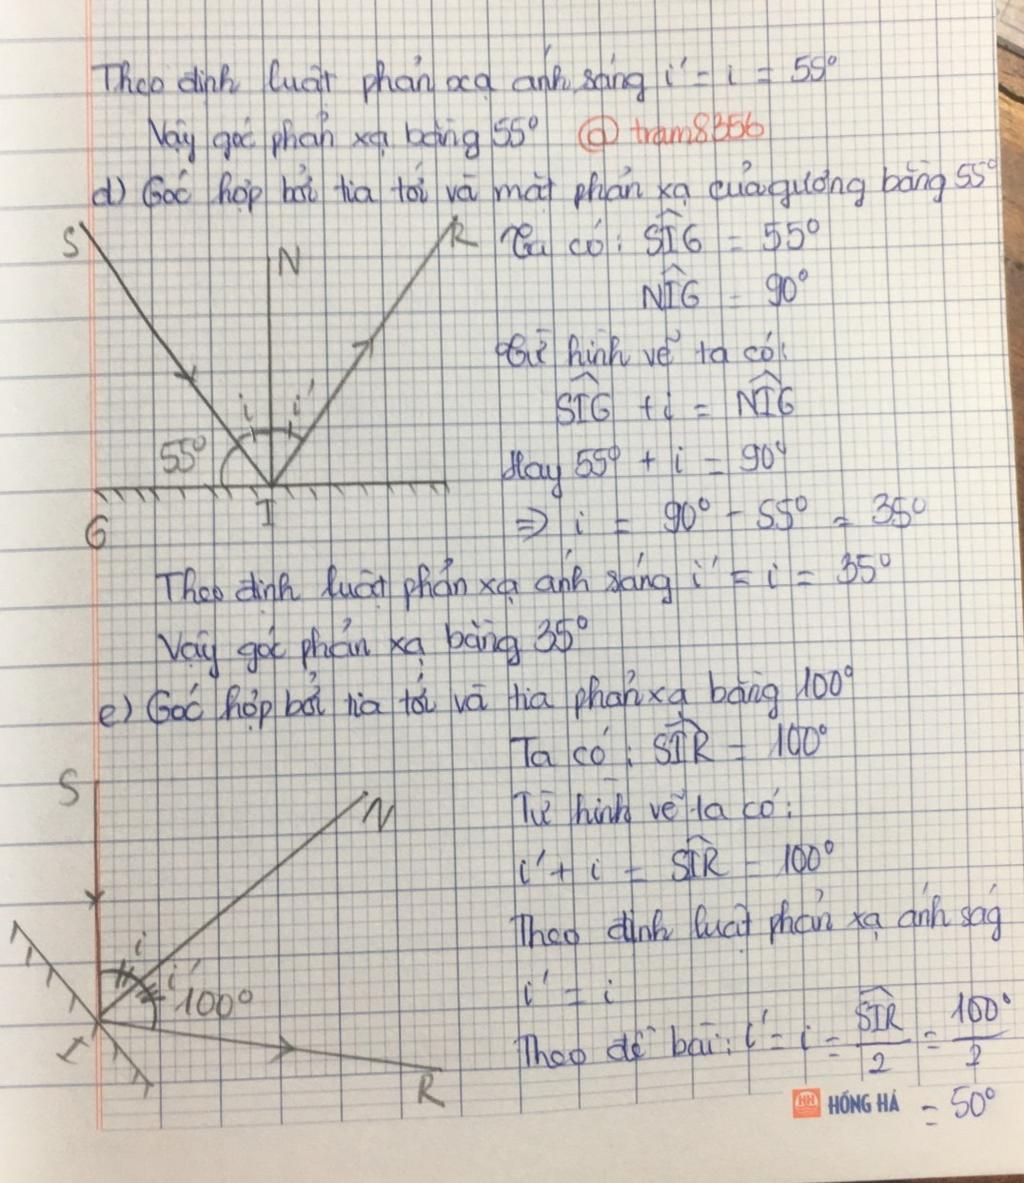 Theo định luật phản xạ ánh sáng i' = i = 55°
Vậy góc phản xạ bằng 55° @ tram8356
d) Góc hợp bởi tia tới và mặt phản xạ của gương bằng 55°
S
N
R
i
i'
55°
G
I
Ta có: SIG = 55°
NIG = 90°
Từ hình vẽ ta có:
SIG + i = NIG
Hay 55° + i = 90°
⇒ i = 90° - 55° = 35°
Theo định luật phản xạ ánh sáng i' = i = 35°
Vậy góc phản xạ bằng 35°
e) Góc hợp bởi tia tới và tia phản xạ bằng 100°
S
N
i
i'
100°
I
R
Ta có: SIR = 100°
Từ hình vẽ ta có:
i' + i = SIR = 100°
Theo định luật phản xạ ánh ság
i' = i
Theo đề bài: i' = i = SIR/2 = 100°/2
HH HỒNG HÀ = 50°